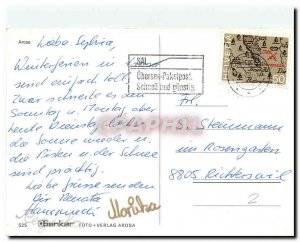 Arosa
Liebe Sylvia,
Winterferien in
sind einfach toll
Zwar schneite es am
Sonntag u. Montag aber
heute Dienstag lacht
die Sonne wieder u.
die Pisten u. der Schnee
sind prächtig.
Liebe Grüsse senden
Dir Renata
SAL
Übersee-Paketpost.
Schnell und günstig.
Frl.
S. Steinmann
im Rosengarten
8805 Richterswil
2
525
FOTO+VERLAG AROSA